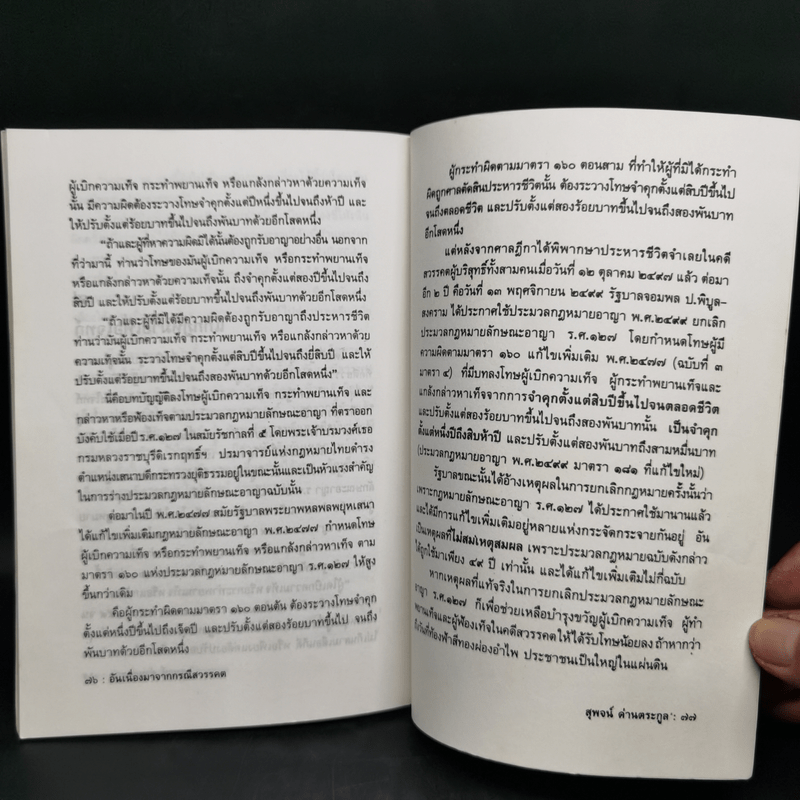 ผู้เบิกความเท็จ กระทำพยานเท็จ หรือแกล้งกล่าวหาด้วยความเท็จ
นั้น มีความผิดต้องระวางโทษจำคุกตั้งแต่ปีหนึ่งขึ้นไปจนถึงห้าปี และ
ให้ปรับตั้งแต่ร้อยบาทขึ้นไปจนถึงพันบาทด้วยอีกโสดหนึ่ง
"ถ้าและผู้ที่หาความผิดมิได้นั้นต้องถูกรับอาญาอย่างอื่น นอกจาก
ที่ว่ามานี้ ท่านว่าโทษของมันผู้เบิกความเท็จ หรือกระทำพยานเท็จ
หรือแกล้งกล่าวหาด้วยความเท็จนั้น ถึงจำคุกตั้งแต่สองปีขึ้นไปจนถึง
สิบปี และให้ปรับตั้งแต่ร้อยบาทขึ้นไปจนถึงพันบาทด้วยอีกโสดหนึ่ง
"ถ้าและผู้ที่มิได้มีความผิดต้องถูกรับอาญาถึงประหารชีวิต
ท่านว่ามันผู้เบิกความเท็จ กระทำพยานเท็จ หรือแกล้งกล่าวหาด้วย
ความเท็จนั้น ระวางโทษจำคุกตั้งแต่สิบปีขึ้นไปจนถึงยี่สิบปี และให้
ปรับตั้งแต่ร้อยบาทขึ้นไปจนถึงสองพันบาทด้วยอีกโสดหนึ่ง"
นี่คือบทบัญญัติลงโทษผู้เบิกความเท็จ กระทำพยานเท็จ และ
กล่าวหาหรือฟ้องเท็จตามประมวลกฎหมายลักษณะอาญา ที่ตราออก
บังคับใช้เมื่อปี ร.ศ.๑๒๗ ในสมัยรัชกาลที่ ๕ โดยพระเจ้าบรมวงศ์เธอ
กรมหลวงราชบุรีดิเรกฤทธิ์ฯ ปรมาจารย์แห่งกฎหมายไทยดำรง
ตำแหน่งเสนาบดีกระทรวงยุติธรรมอยู่ในขณะนั้นและเป็นหัวแรงสำคัญ
ในการร่างประมวลกฎหมายลักษณะอาญาฉบับนั้น
ต่อมาในปี พ.ศ.๒๔๗๗ สมัยรัฐบาลพระยาพหลพลพยุหเสนา
ได้แก้ไขเพิ่มเติมกฎหมายลักษณะอาญา พ.ศ.๒๔๗๗ กำหนดโทษ
ผู้เบิกความเท็จ หรือกระทำพยานเท็จ หรือแกล้งกล่าวหาเท็จ ตาม
มาตรา ๑๖๐ แห่งประมวลกฎหมายลักษณะอาญา ร.ศ.๑๒๗ ให้สูง
ขึ้นกว่าเดิม
คือผู้กระทำผิดตามมาตรา ๑๖๐ ตอนต้น ต้องระวางโทษจำคุก
ตั้งแต่หนึ่งปีขึ้นไปถึงเจ็ดปี และปรับตั้งแต่สองร้อยบาทขึ้นไป จนถึง
พันบาทด้วยอีกโสดหนึ่ง
๗๖ : อันเนื่องมาจากกรณีสวรรคต
ผู้กระทำผิดตามมาตรา ๑๖๐ ตอนสาม ที่ทำให้ผู้ที่มิได้กระทำ
ผิดถูกศาลตัดสินประหารชีวิตนั้น ต้องระวางโทษจำคุกตั้งแต่สิบปีขึ้นไป
จนถึงตลอดชีวิต และปรับตั้งแต่สองร้อยบาทขึ้นไปจนถึงสองพันบาท
อีกโสดหนึ่ง
แต่หลังจากศาลฎีกาได้พิพากษาประหารชีวิตจำเลยในคดี
สวรรคตผู้บริสุทธิ์ทั้งสามคนเมื่อวันที่ ๑๒ ตุลาคม ๒๔๙๗ แล้ว ต่อมา
อีก ๒ ปี คือวันที่ ๑๓ พฤศจิกายน ๒๔๙๙ รัฐบาลจอมพล ป.พิบูล-
สงคราม ได้ประกาศใช้ประมวลกฎหมายอาญา พ.ศ.๒๔๙๙ ยกเลิก
ประมวลกฎหมายลักษณะอาญา ร.ศ.๑๒๗ โดยกำหนดโทษผู้มี
ความผิดตามมาตรา ๑๖๐ แก้ไขเพิ่มเติม พ.ศ.๒๔๗๗ (ฉบับที่ ๓
มาตรา ๔) ที่มีบทลงโทษผู้เบิกความเท็จ ผู้กระทำพยานเท็จและ
แกล้งกล่าวหาเท็จจากการจำคุกตั้งแต่สิบปีขึ้นไปจนตลอดชีวิต
และปรับตั้งแต่สองร้อยบาทขึ้นไปจนถึงสองพันบาทนั้น เป็นจำคุก
ตั้งแต่หนึ่งปีถึงสิบห้าปี และปรับตั้งแต่สองพันบาทถึงสามหมื่นบาท
(ประมวลกฎหมายอาญา พ.ศ.๒๔๙๙ มาตรา ๑๘๑ ที่แก้ไขใหม่)
รัฐบาลขณะนั้นได้อ้างเหตุผลในการยกเลิกกฎหมายครั้งนั้นว่า
เพราะกฎหมายลักษณะอาญา ร.ศ.๑๒๗ ได้ประกาศใช้มานานแล้ว
และได้มีการแก้ไขเพิ่มเติมอยู่หลายแห่งกระจัดกระจายกันอยู่ อัน
เป็นเหตุผลที่ไม่สมเหตุสมผล เพราะประมวลกฎหมายฉบับดังกล่าว
ได้ถูกใช้มาเพียง ๔๙ ปี เท่านั้น และได้แก้ไขเพิ่มเติมไม่กี่ฉบับ
หากเหตุผลที่แท้จริงในการยกเลิกประมวลกฎหมายลักษณะ
อาญา ร.ศ.๑๒๗ ก็เพื่อช่วยเหลือบำรุงขวัญผู้เบิกความเท็จ ผู้ทำ
พยานเท็จและผู้ฟ้องเท็จในคดีสวรรคตให้ได้รับโทษน้อยลง ถ้าหากว่า
ถึงวันที่ท้องฟ้าสีทองผ่องอำไพ ประชาชนเป็นใหญ่ในแผ่นดิน
สุพจน์ ด่านตระกูล : ๗๗